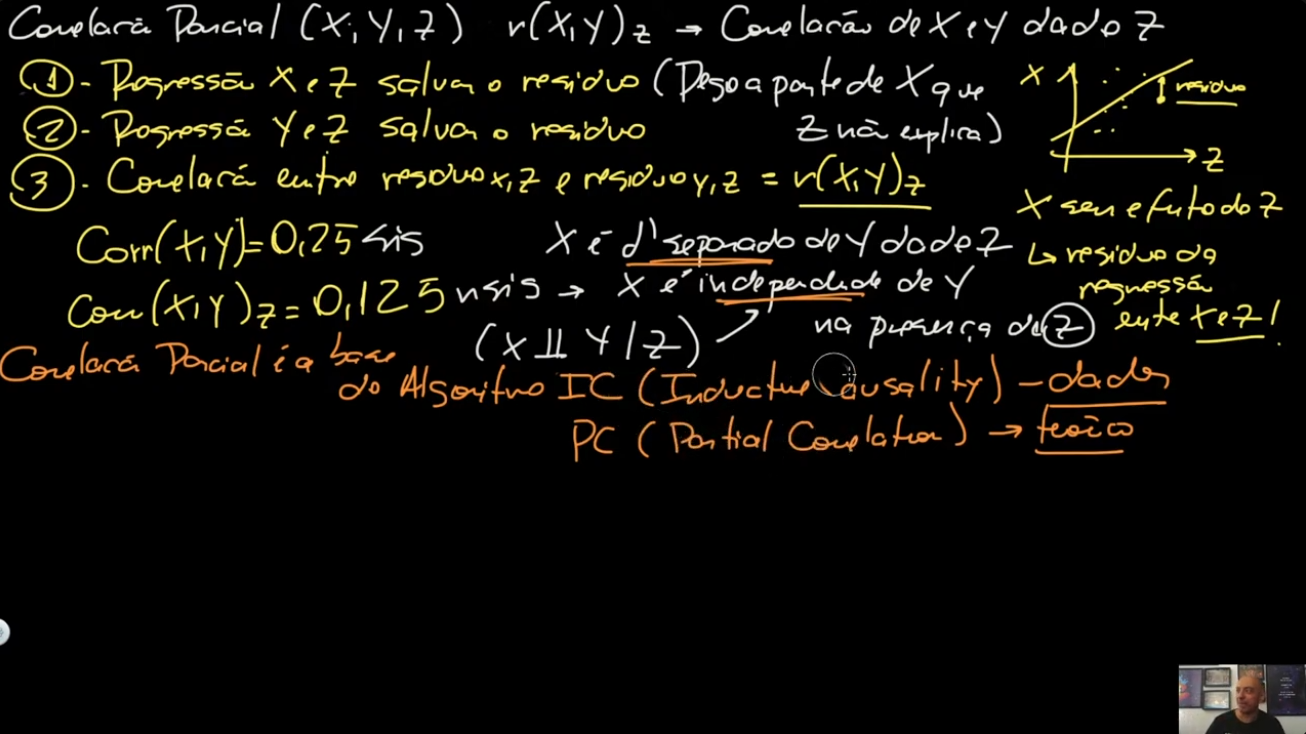 Correlação Parcial (X, Y, Z) r(X,Y)z → Correlação de X e Y dado Z
① - Regressão X e Z salva o resíduo (Pego a parte de X que
Z não explica)
② - Regressão Y e Z salva o resíduo
③ - Correlação entre resíduo x,z e resíduo y,z = r(X,Y)z
X
resíduo
Z
X sem efeito do Z
↳ resíduo da
regressão
entre X e Z!
Corr(X,Y) = 0,25 sis
X é d'separado de Y dado Z
Corr(X,Y)z = 0,125 nsis → X é independente de Y
na presença de Z
(X ⫫ Y | Z)
Correlação Parcial é a base
do Algoritmo IC (Inductive Causality) - dados
PC (Partial Correlation) → teórico